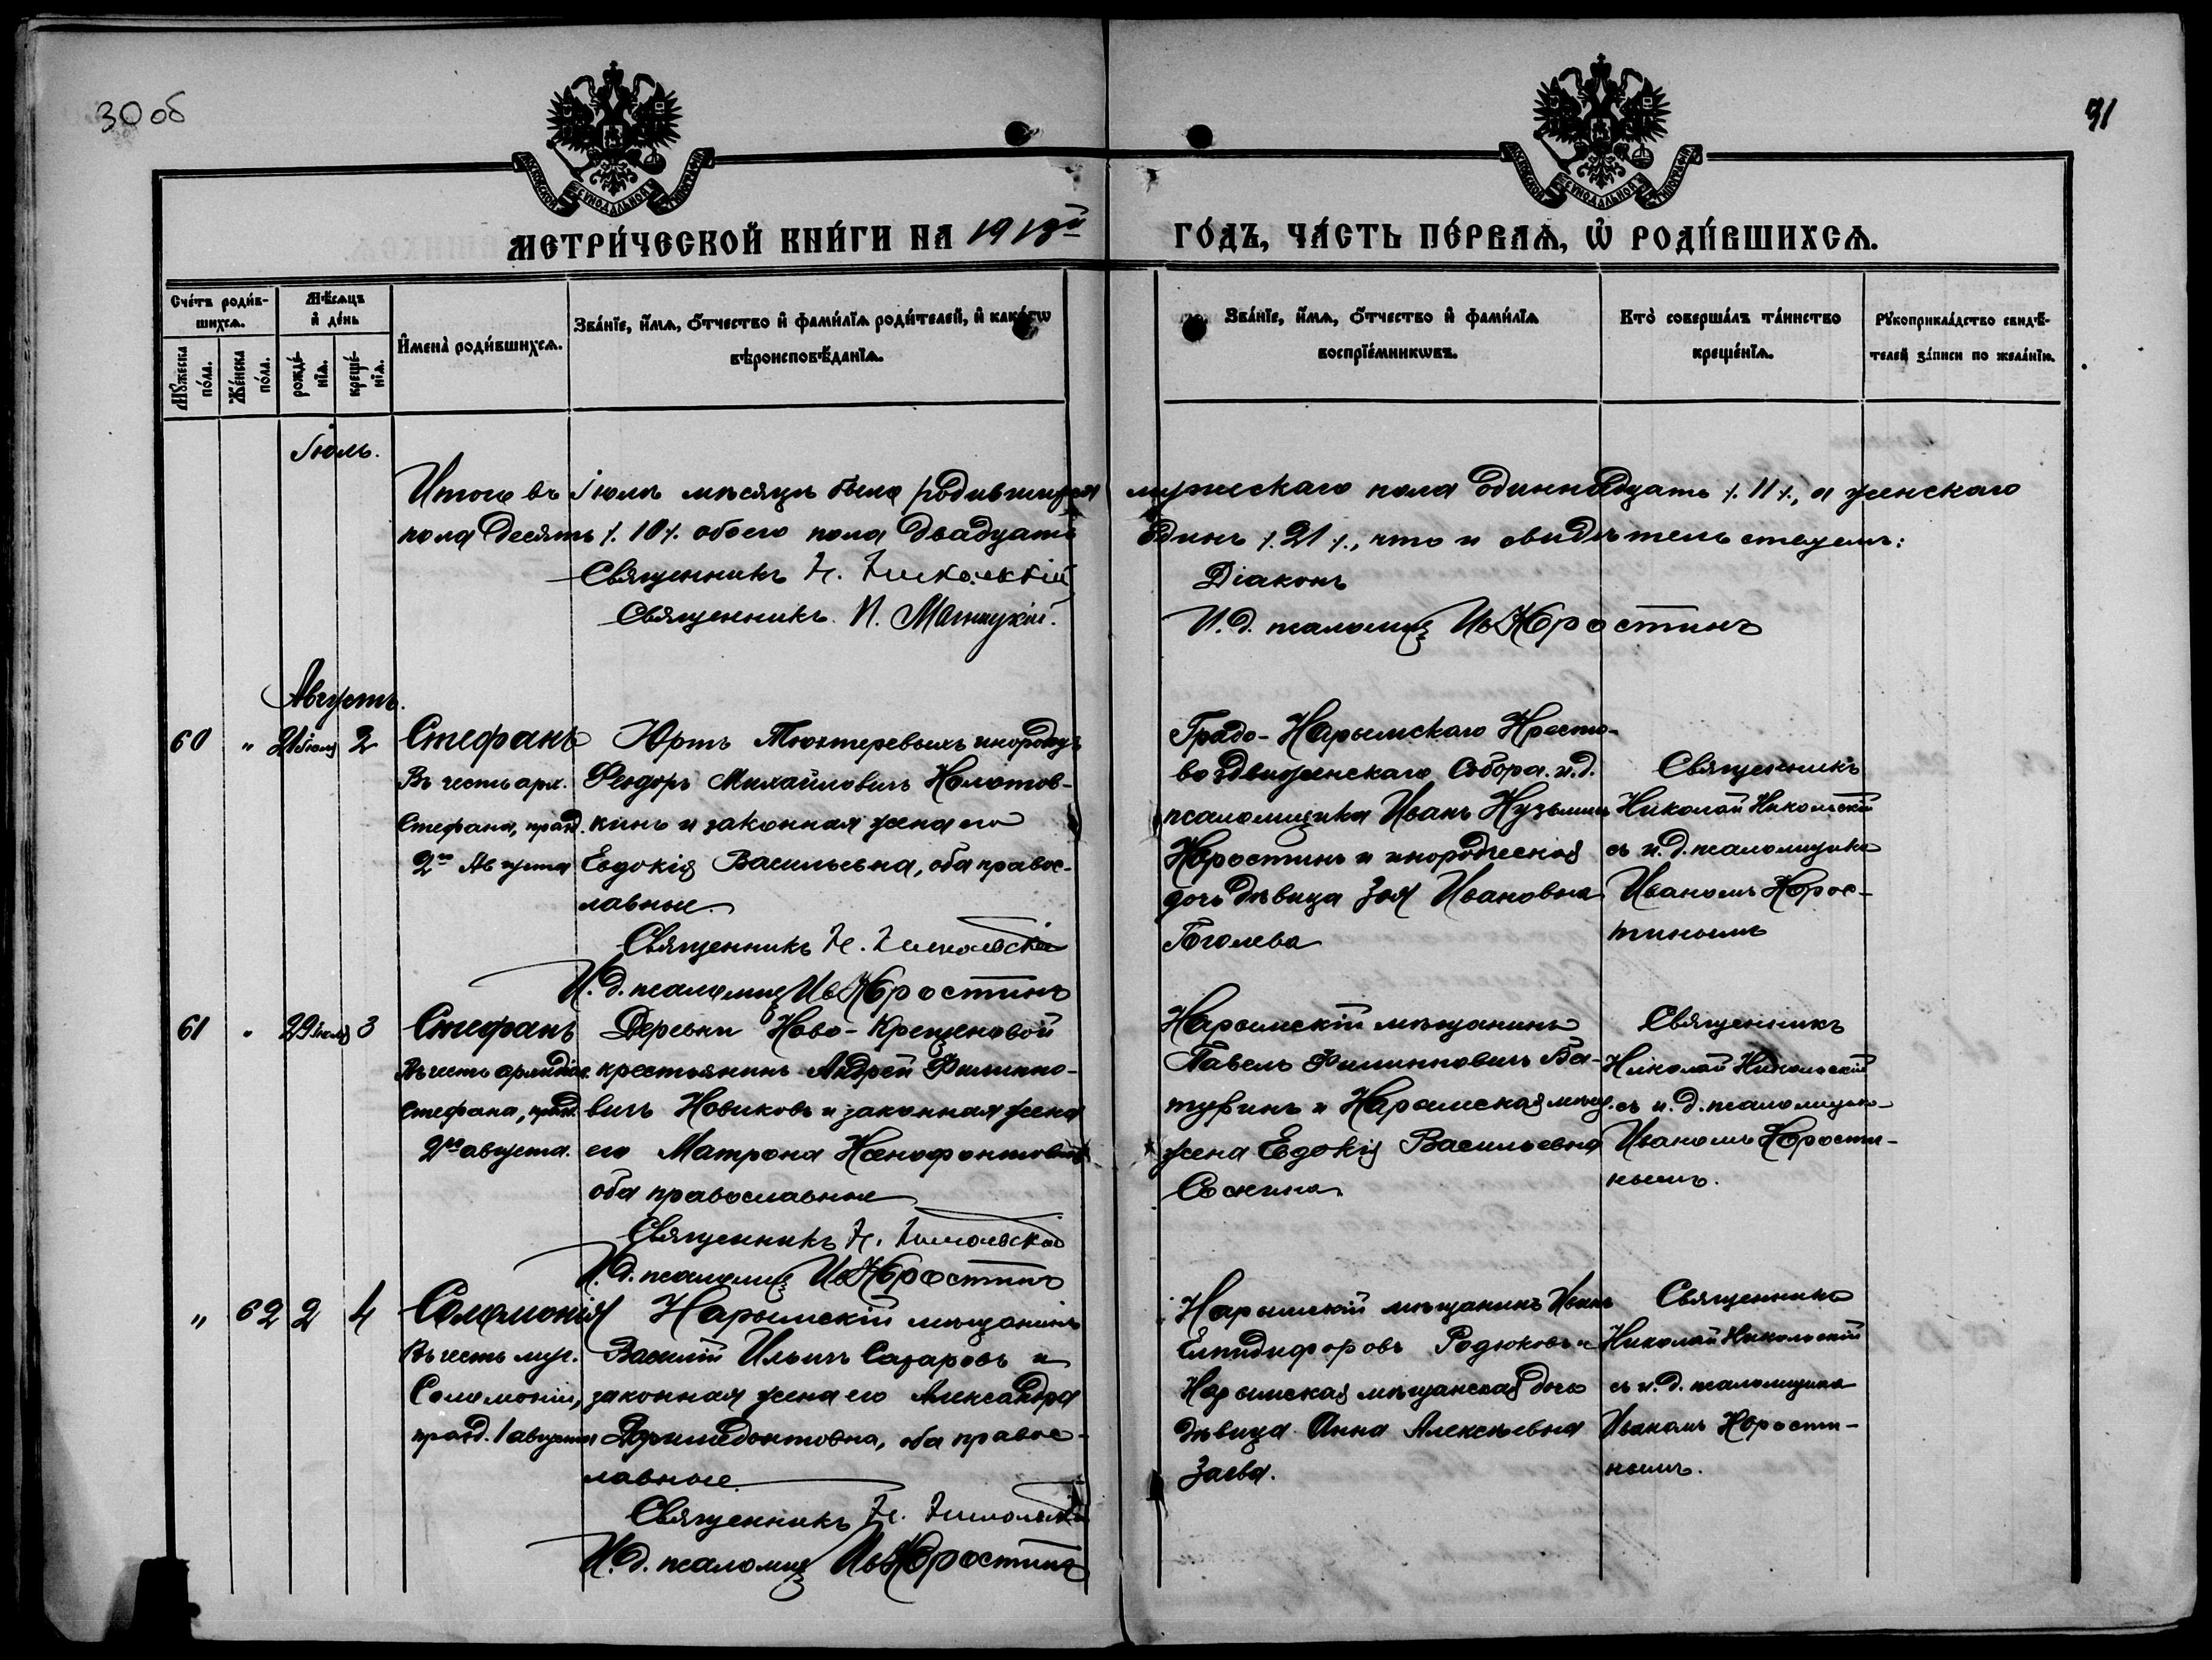 30 об
31
МОСКОВСКОЙ СѴНОДАЛЬНОЙ ТИПОГРАФІИ
МОСКОВСКОЙ СѴНОДАЛЬНОЙ ТИПОГРАФІИ
МЕТРИ́ЧЕСКОЙ КНИ́ГИ НА 1913й ГО́ДЪ, ЧА́СТЬ ПЕ́РВАѦ, Ѡ҆ РОДИ́ВШИХСѦ.
Сче́тъ роди́в-
шихсѧ.
Мꙋ́жеска по́ла.
Же́нска по́ла.
Мѣ́сѧцъ
и҆ де́нь
рожде́-
нїѧ.
креще́-
нїѧ.
И҆мена̀ роди́вшихсѧ.
Зва́нїе, и҆́мѧ, ѻ҆́тчество и҆ фами́лїѧ роди́телей, и҆ како́гѡ
вѣроисповѣ́данїѧ.
Зва́нїе, и҆́мѧ, ѻ҆́тчество и҆ фами́лїѧ
воспрїе́мникѡвъ.
Кто̀ соверша́лъ та́инство
креще́нїѧ.
Рꙋкоприкла́дство свидѣ́-
телей за́писи по жела́нїю.
Іюль.
Итого въ Іюлѣ мѣсяцѣ было родившихся мужескаго пола одиннадцать /.11/., а женскаго
пола десять /.10/. обоего пола двадцать одинъ /.21/., что и свидѣтельствуемъ:
Священникъ Н. Никольскій
Діаконъ
Священникъ П. Магницкій.
И. д. псаломщ Ив Коростинъ
Августъ.
60 " 21 Іюля 2 Стефанъ
Въ честь арх.
Стефана, празд.
2го Августа
Юртъ Тюхтеревыхъ инородецъ
Феодоръ Михайловичъ Колотов-
кинъ и законная жена его
Евдокія Васильевна, оба правос-
лавные.
Священникъ Н. Никольскій
И. д. псаломщ Ив Коростинъ
Градо-Нарымскаго Кресто-
воздвиженскаго Собора и.д.
псаломщика Иванъ Кузьмичъ
Коростинъ и инородческая
дочь дѣвица Зоя Ивановна
Гоголева
Священникъ
Николай Никольскій
съ и. д. псаломщика
Иваномъ Корос-
тинымъ
61 " 29 Іюля 3 Стефанъ
Въ честь архидіак.
Стефана, празд.
2го августа.
Деревни Ново-Крещеновой
крестьянинъ Андрей Филиппо-
вичъ Новиковъ и законная жена
его Матрона Ксенофонтовна
оба православные
Священникъ Н. Никольскій
И. д. псаломщ Ив Коростинъ
Нарымскій мѣщанинъ
Павелъ Филипповичъ Ба-
туринъ и Нарымская мѣщ.
жена Евдокія Васильевна
Соскина
Священникъ
Николай Никольскій
съ и. д. псаломщика
Иваномъ Корости-
нымъ.
" 62 2 4 Соломонія
Въ честь муч.
Соломоніи,
празд. 1 августа
Нарымскій мѣщанинъ
Василій Ильичъ Сазаровъ и
законная жена его Александра
Ѳирмедонтовна, оба правос-
лавные.
Священникъ Н. Никольскій
И. д. псаломщ Ив Коростинъ
Нарымскій мѣщанинъ Иванъ
Елпидифоровъ Родюковъ и
Нарымская мѣщанская дочь
дѣвица Анна Алексѣевна
Заева.
Священникъ
Николай Никольскій
съ и. д. псаломщика
Иваномъ Корости-
нымъ.